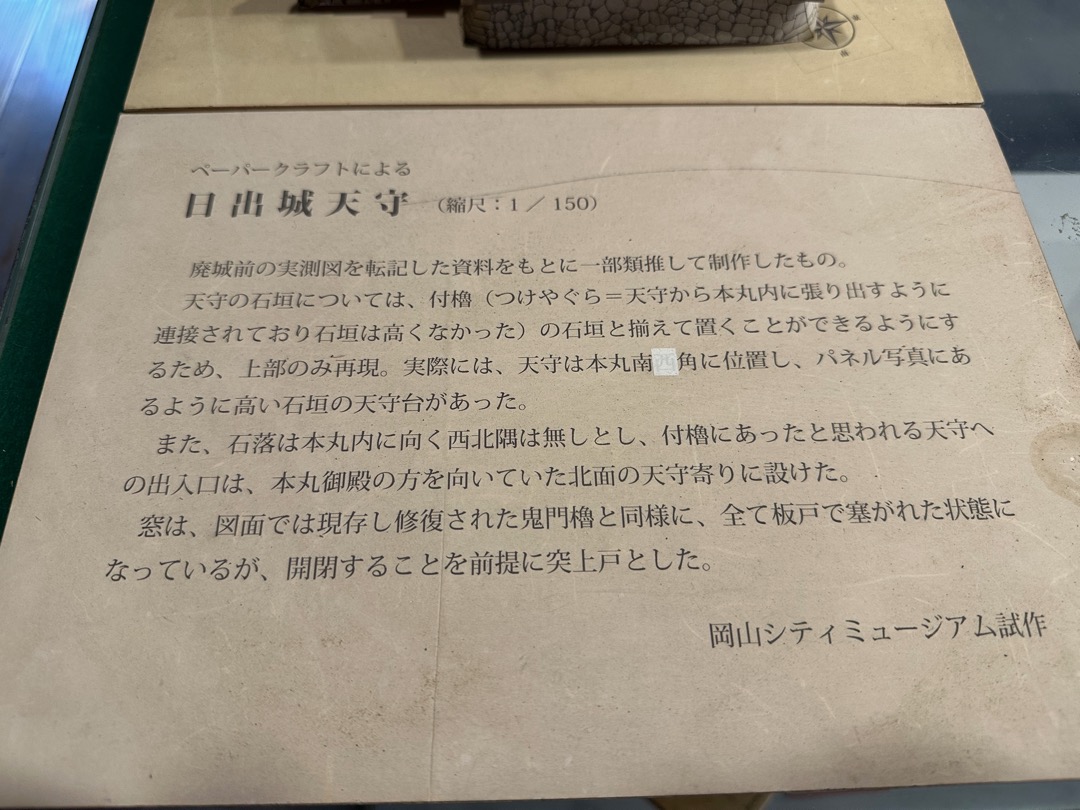 ペーパークラフトによる
日出城天守 （縮尺：1／150）
廃城前の実測図を転記した資料をもとに一部類推して制作したもの。
天守の石垣については、付櫓（つけやぐら＝天守から本丸内に張り出すように
連接されており石垣は高くなかった）の石垣と揃えて置くことができるようにす
るため、上部のみ再現。実際には、天守は本丸南西角に位置し、パネル写真にあ
るように高い石垣の天守台があった。
また、石落は本丸内に向く西北隅は無しとし、付櫓にあったと思われる天守へ
の出入口は、本丸御殿の方を向いていた北面の天守寄りに設けた。
窓は、図面では現存し修復された鬼門櫓と同様に、全て板戸で塞がれた状態に
なっているが、開閉することを前提に突上戸とした。
岡山シティミュージアム試作